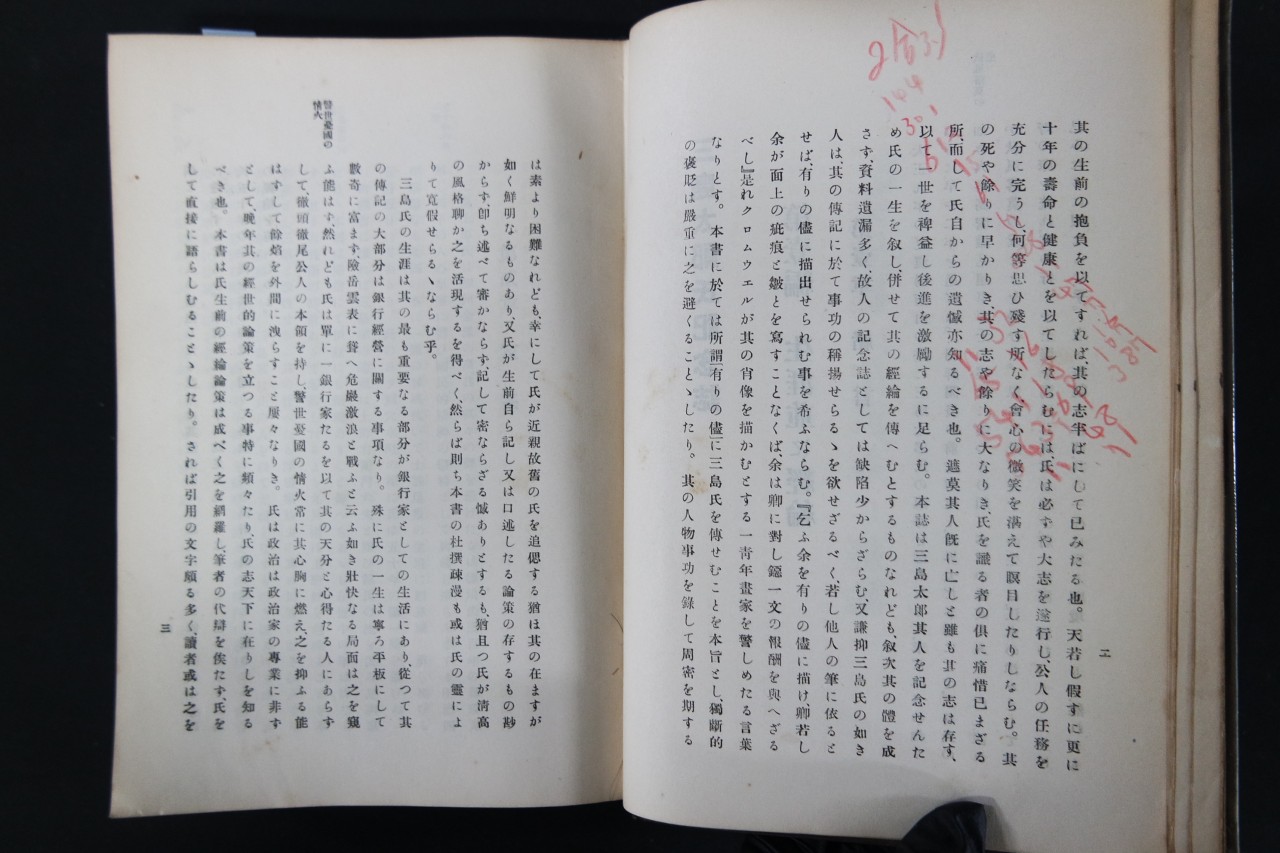 二
其の生前の抱負を以てすれば、其の志半ばにして已みたる也。天若し假すに更に
十年の壽命と健康とを以てしたらむには、氏は必ずや大志を遂行し、公人の任務を
充分に完うし、何等思ひ殘す所なく、會心の微笑を湛えて瞑目したりしならむ。其
の死や餘りに早かりき、其の志や餘りに大なりき、氏を識る者の俱に痛惜已まざる
所、而して氏自からの遺憾亦知るべき也。遮莫其人旣に亡しと雖も其の志は存す、
以て一世を裨益し後進を激勵するに足らむ。本誌は三島太郎其人を記念せんた
め氏の一生を叙し、併せて其の經綸を傳へむとするものなれども、叙次其の體を成
さず、資料遺漏多く、故人の記念誌としては缺陷少からざらむ、又謙抑三島氏の如き
人は、其の傳記に於て事功の稱揚せらるゝを欲せざるべく、若し他人の筆に依ると
せば、有りの儘に描出せられむ事を希ふならむ。『乞ふ余を有りの儘に描け、卿若し
余が面上の疵痕と皺とを寫すことなくば、余は卿に對し鐚一文の報酬を與へざる
べし』是れクロムウエルが其の肖像を描かむとする一青年畫家を警しめたる言葉
なりとす。本書に於ては所謂有りの儘に三島氏を傳せむことを本旨とし、獨斷的
の褒貶は嚴重に之を避くることゝしたり。其の人物事功を錄して周密を期する
は素より困難なれども、幸にして氏が近親故舊の氏を追偲する猶ほ其の在ますが
如く鮮明なるものあり、又氏が生前自ら記し又は口述したる論策の存するもの尠
からず、卽ち述べて審かならず、記して密ならざる憾ありとするも、猶且つ氏が清高
の風格聊か之を活現するを得べく、然らば則ち本書の杜撰疎漫も或は氏の靈によ
りて寬假せらるゝならむ乎。
三島氏の生涯は其の最も重要なる部分が銀行家としての生活にあり、從つて其
の傳記の大部分は銀行經營に關する事項なり。殊に氏の一生は寧ろ平板にして
數奇に富まず、險岳雲表に聳へ危巖激浪と戰ふと云ふ如き壯快なる局面は之を窺
ふ能はず、然れども氏は單に一銀行家たるを以て其の天分と心得たる人にあらず
して、徹頭徹尾公人の本領を持し、警世憂國の情火常に其心胸に燃え之を抑ふる能
はずして餘焰を外間に洩らすこと屢々なりき。氏は政治は政治家の專業に非ず
として、晩年其の經世的論策を立つる事特に頻々たり、氏の志天下に在りしを知る
べき也。本書は氏生前の經綸論策は成べく之を網羅し、筆者の代辯を俟たず、氏を
して直接に語らしむることゝしたり。されば引用の文字頗る多く、讀者或は之を
警世憂國の
情火
三